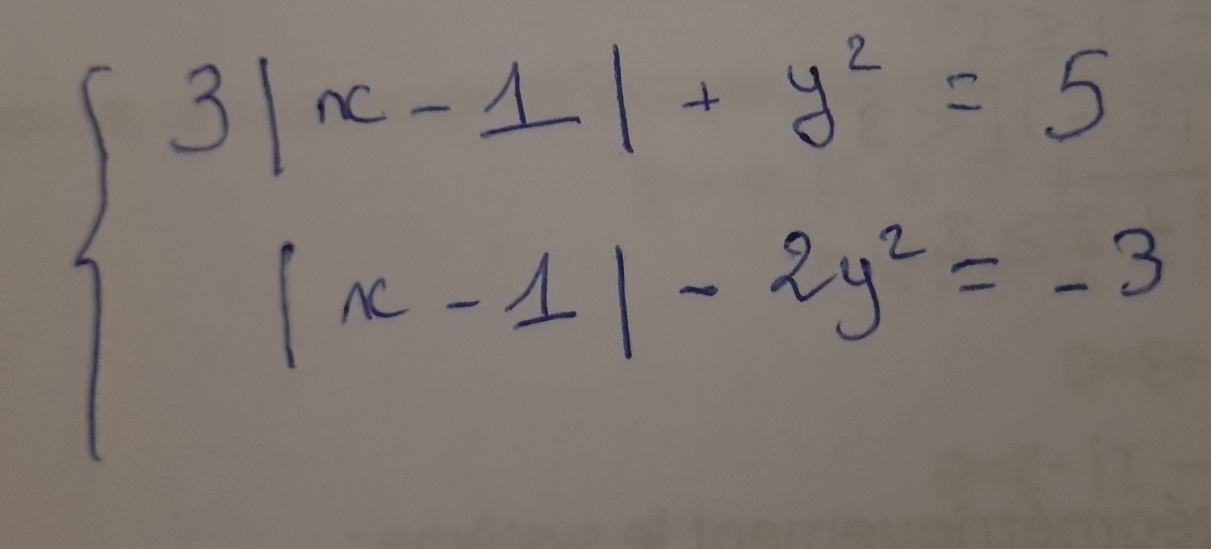 3|x - 1| + y² = 5
|x - 1| - 2y² = -3